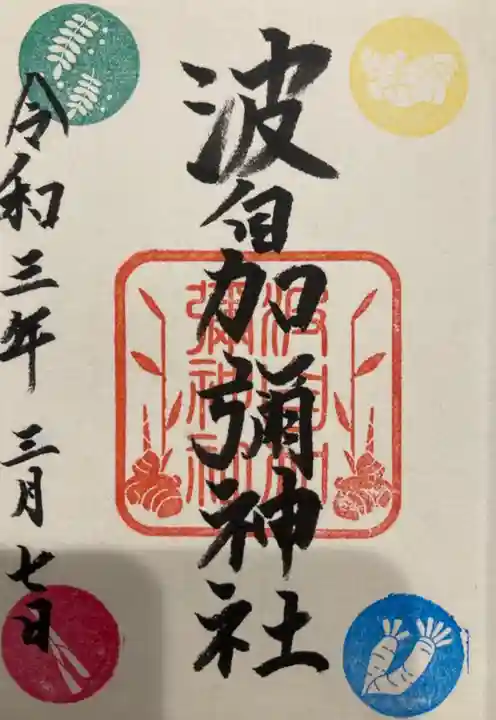 波自加彌神社
波自加
彌神社
令和三年 三月七日